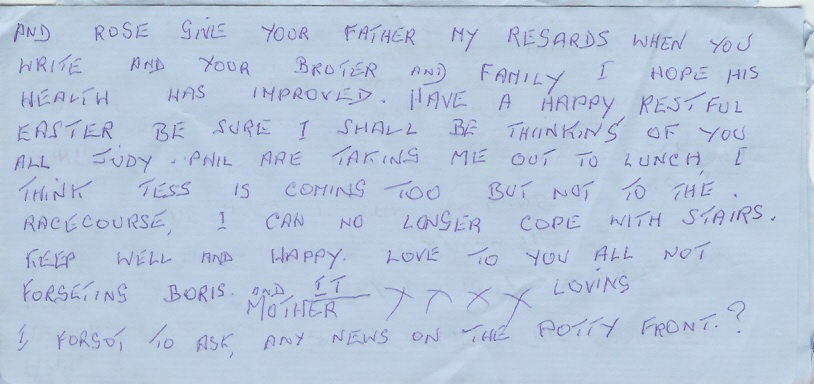 AND ROSE GIVE YOUR FATHER MY REGARDS WHEN YOU
WRITE AND YOUR BROTER AND FAMILY I HOPE HIS
HEALTH HAS IMPROVED. HAVE A HAPPY RESTFUL
EASTER BE SURE I SHALL BE THIINKING OF YOU
ALL JUDY. PHIL ARE TAKING ME OUT TO LUNCH, I
THINK TESS IS COMING TOO BUT NOT TO THE.
RACECOURSE, I CAN NO LONGER COPE WITH STAIRS.
KEEP WELL AND HAPPY. LOVE TO YOU ALL NOT
FORGETING BORIS. AND IT LOVING
MOTHER X X X X
I FORGOT TO ASK, ANY NEWS ON THE POTTY FRONT.?